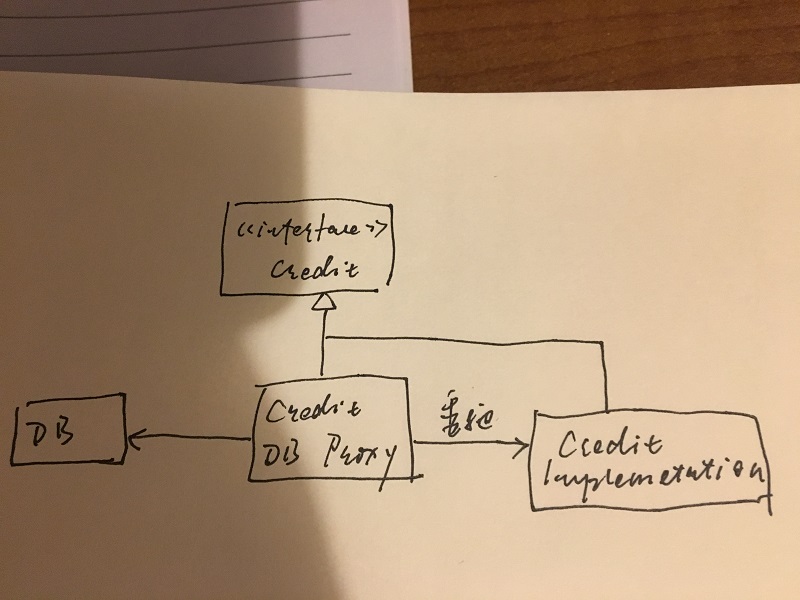 <<interface>>
Credit
DB
Credit
DB Proxy
委托
Credit
Implemetation